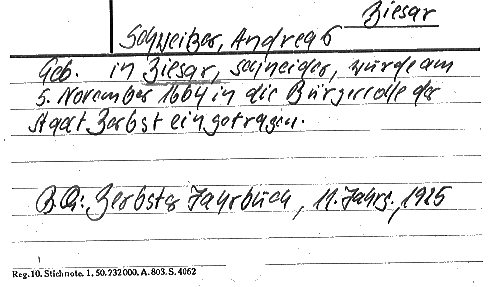 Ziesar
Schweitzer, Andreas
Geb. in Ziesar, Schneider, wurde am
5. November 1604 in die Bürgerrolle der
Stadt Zerbst eingetragen.
B.Qu: Zerbster Jahrbuch, 11. Jahrg., 1925
Reg. 10. Stichnote. 1. 50. 232000. A. 803. S. 4062